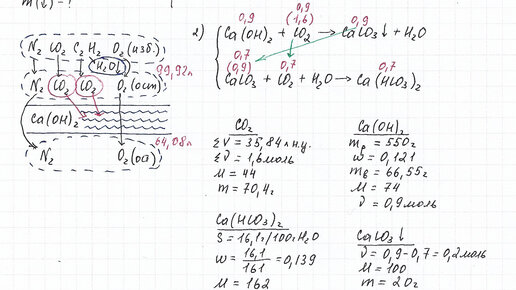 m(↓) - ?
N₂ CO₂ C₂H₂ O₂ (изб.)
H₂O
99,92л
N₂ CO₂ CO₂ O₂ (ост)
Ca(OH)₂
64,08л
N₂ O₂ (ост)
2)
0,9 0,9 (1,6) 0,9
Ca(OH)₂ + CO₂ → CaCO₃↓ + H₂O
0,7 (0,9) 0,7 0,7
CaCO₃ + CO₂ + H₂O → Ca(HCO₃)₂
CO₂
ΣV = 35,84л н.у.
Σν = 1,6 моль
M = 44
m = 70,4г
Ca(OH)₂
mр = 550г
w = 0,121
mв = 66,55г
M = 74
ν = 0,9 моль
Ca(HCO₃)₂
S = 16,1г/100г H₂O
w = 16,1/161 = 0,139
M = 162
CaCO₃↓
ν = 0,9 - 0,7 = 0,2 моль
M = 100
m = 20г